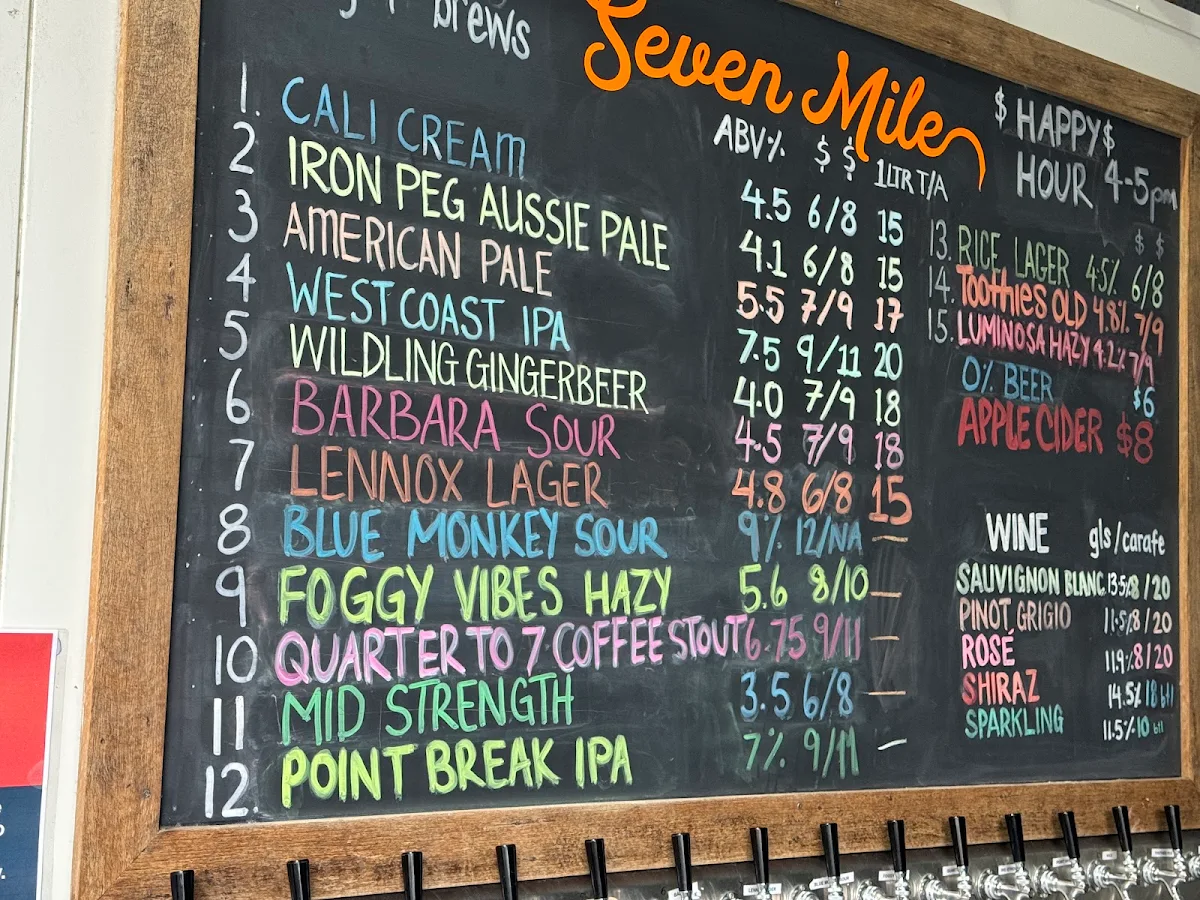 brews
Seven Mile
ABV% $ $ 1LTR T/A
1. CALI CREAM 4.5 6/8 15
2 IRON PEG AUSSIE PALE 4.1 6/8 15
3 AMERICAN PALE 5.5 7/9 17
4 WEST COAST IPA 7.5 9/11 20
5 WILDLING GINGERBEER 4.0 7/9 18
6 BARBARA SOUR 4.5 7/9 18
7 LENNOX LAGER 4.8 6/8 15
8 BLUE MONKEY SOUR 9% 12/NA –
9 FOGGY VIBES HAZY 5.6 8/10 –
10 QUARTER TO 7 COFFEE STOUT 6.75 9/11 –
11 MID STRENGTH 3.5 6/8 –
12. POINT BREAK IPA 7% 9/11 –
$ HAPPY $
HOUR 4-5pm
$ $
13. RICE LAGER 4.5% 6/8
14. TOOTHIES OLD 4.8% 7/9
15. LUMINOSA HAZY 4.2% 7/9
0% BEER $6
APPLE CIDER $8
WINE gls/carafe
SAUVIGNON BLANC 13.5% 8/20
PINOT GRIGIO 11.5% 8/20
ROSÉ 11.9% 8/20
SHIRAZ 14.5% 18 btl
SPARKLING 11.5% 10 btl